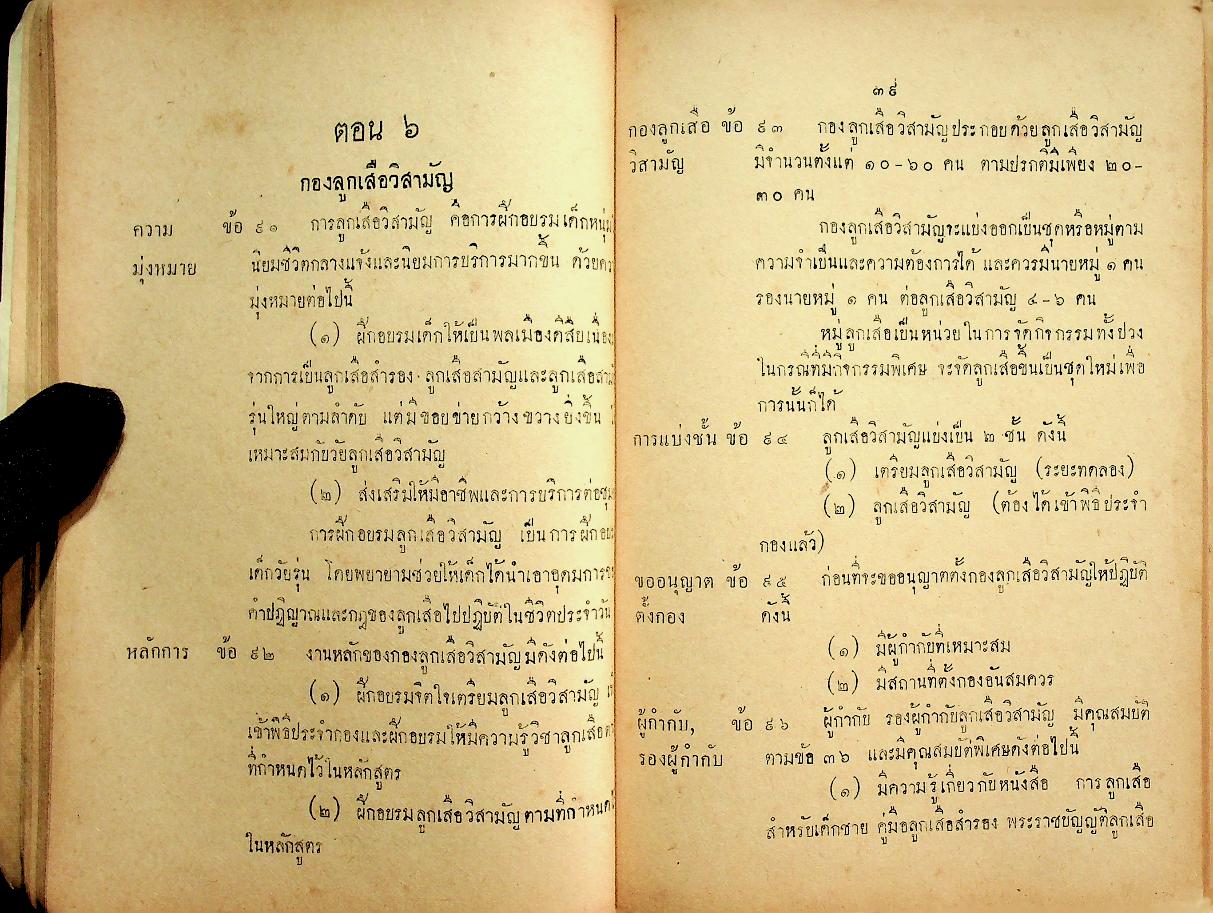 ตอน ๖
กองลูกเสือวิสามัญ
ความ ข้อ ๙๑ การลูกเสือวิสามัญ คือการฝึกอบรมเด็กหนุ่ม
มุ่งหมาย นิยมชีวิตกลางแจ้งและนิยมการบริการมากขึ้น ด้วย
มุ่งหมายต่อไปนี้
(๑) ฝึกอบรมเด็กให้เป็นพลเมืองดีสืบเนื่อง
จากการเป็นลูกเสือสำรอง ลูกเสือสามัญและลูกเสือ
รุ่นใหญ่ตามลำดับ แต่มีขอบข่ายกว้างขวางยิ่งขึ้น
เหมาะสมกับวัยลูกเสือวิสามัญ
(๒) ส่งเสริมให้มีอาชีพและการบริการต่อ
การฝึกอบรมลูกเสือวิสามัญ เป็นการ
เด็กวัยรุ่น โดยพยายามช่วยให้เด็กได้นำเอาอุดมการ
คำปฏิญาณและกฎของลูกเสือไปปฏิบัติในชีวิตประจำวัน
หลักการ ข้อ ๙๒ งานหลักของกองลูกเสือวิสามัญมีดังต่อไปนี้
(๑) ฝึกอบรมจิตใจเตรียมลูกเสือวิสามัญ
เข้าพิธีประจำกองและฝึกอบรมให้มีความรู้วิชาลูกเสือ
ที่กำหนดไว้ในหลักสูตร
(๒) ฝึกอบรมลูกเสือวิสามัญตามที่กำหนด
ในหลักสูตร
๓๙
กองลูกเสือ ข้อ ๙๓ กองลูกเสือวิสามัญประกอบด้วยลูกเสือวิสามัญ
วิสามัญ มีจำนวนตั้งแต่ ๑๐-๖๐ คน ตามปรกติมีเพียง ๒๐-
๓๐ คน
กองลูกเสือวิสามัญจะแบ่งออกเป็นชุดหรือหมู่ตาม
ความจำเป็นและความต้องการได้ และควรมีนายหมู่ ๑ คน
รองนายหมู่ ๑ คน ต่อลูกเสือวิสามัญ ๔-๖ คน
หมู่ลูกเสือเป็นหน่วยในการจัดกิจกรรมทั้งปวง
ในกรณีที่มีกิจกรรมพิเศษ จะจัดลูกเสือขึ้นเป็นชุดใหม่เพื่อ
การนั้นก็ได้
การแบ่งชั้น ข้อ ๙๔ ลูกเสือวิสามัญแบ่งเป็น ๒ ชั้น ดังนี้
(๑) เตรียมลูกเสือวิสามัญ (ระยะทดลอง)
(๒) ลูกเสือวิสามัญ (ต้องได้เข้าพิธีประจำ
กองแล้ว)
ขออนุญาต ข้อ ๙๕ ก่อนที่จะขออนุญาตตั้งกองลูกเสือวิสามัญให้ปฏิบัติ
ตั้งกอง ดังนี้
(๑) มีผู้กำกับที่เหมาะสม
(๒) มีสถานที่ตั้งกองอันสมควร
ผู้กำกับ, ข้อ ๙๖ ผู้กำกับ รองผู้กำกับลูกเสือวิสามัญ มีคุณสมบัติ
รองผู้กำกับ ตามข้อ ๓๖ และมีคุณสมบัติพิเศษดังต่อไปนี้
(๑) มีความรู้เกี่ยวกับหนังสือ การลูกเสือ
สำหรับเด็กชาย คู่มือลูกเสือสำรอง พระราชบัญญัติลูกเสือ